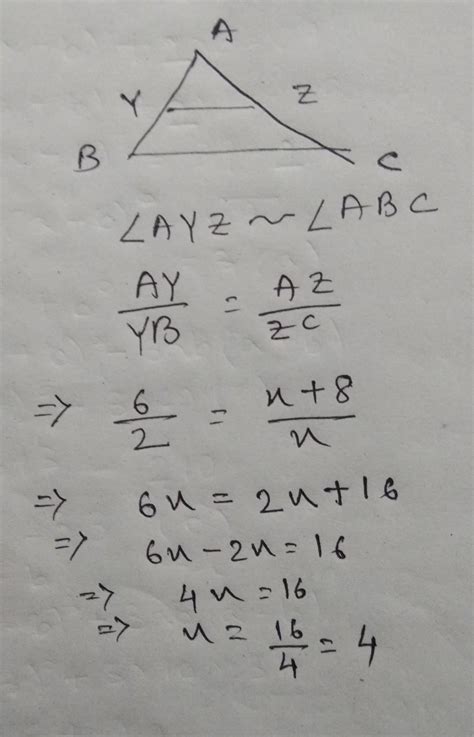 A
Y Z
B C
∠AYZ ~ ∠ABC
AY/YB = AZ/ZC
=> 6/2 = x+8/x
=> 6x = 2x+16
=> 6x-2x=16
=> 4x=16
=> x = 16/4 = 4